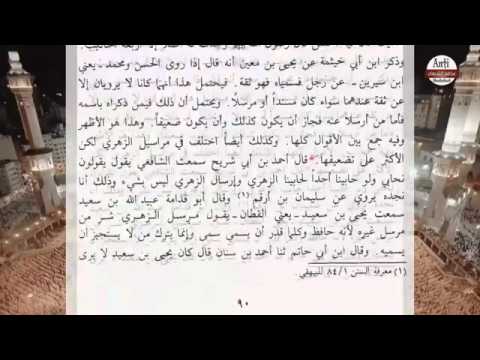 وذكر ابن أبي خيثمة عن يحيى بن معين أنه قال إذا روى الحسن ومحمد ـ يعني
ابن سيرين ـ عن رجل فسمياه فهو ثقة. فيحتمل هذا أنهما كانا لا يرويان إلا
عن ثقة عندهما سواء كان مسنداً أو مرسلاً. ويحتمل أن ذلك فيمن ذكراه باسمه
فأما من أرسلا عنه فجاز أن يكون كذلك وأن يكون ضعيفاً. وهذا هو الأظهر
وفيه جمع بين الأقوال كلها. وكذلك أيضاً اختلف في مراسيل الزهري لكن
الأكثر على تضعيفها. قال أحمد بن أبي شريح سمعت الشافعي يقول يقولون
نحابي ولو حابينا أحداً لحابينا الزهري وإرسال الزهري ليس بشيء وذلك أنا
نجده يروي عن سليمان بن أرقم (١) وقال أبو قدامة عبيد الله بن سعيد
سمعت يحيى بن سعيد ـ يعني القطان ـ يقول مرسل الزهري شر من
مرسل غيره لأنه حافظ وكلما قدر أن يسمي سمى وإنما يترك من لا يستجيز أن
يسميه. وقال ابن أبي حاتم ثنا أحمد بن سنان قال كان يحيى بن سعيد لا يرى
(١) معرفة السنن ٨٤/١ للبيهقي.
٩٠